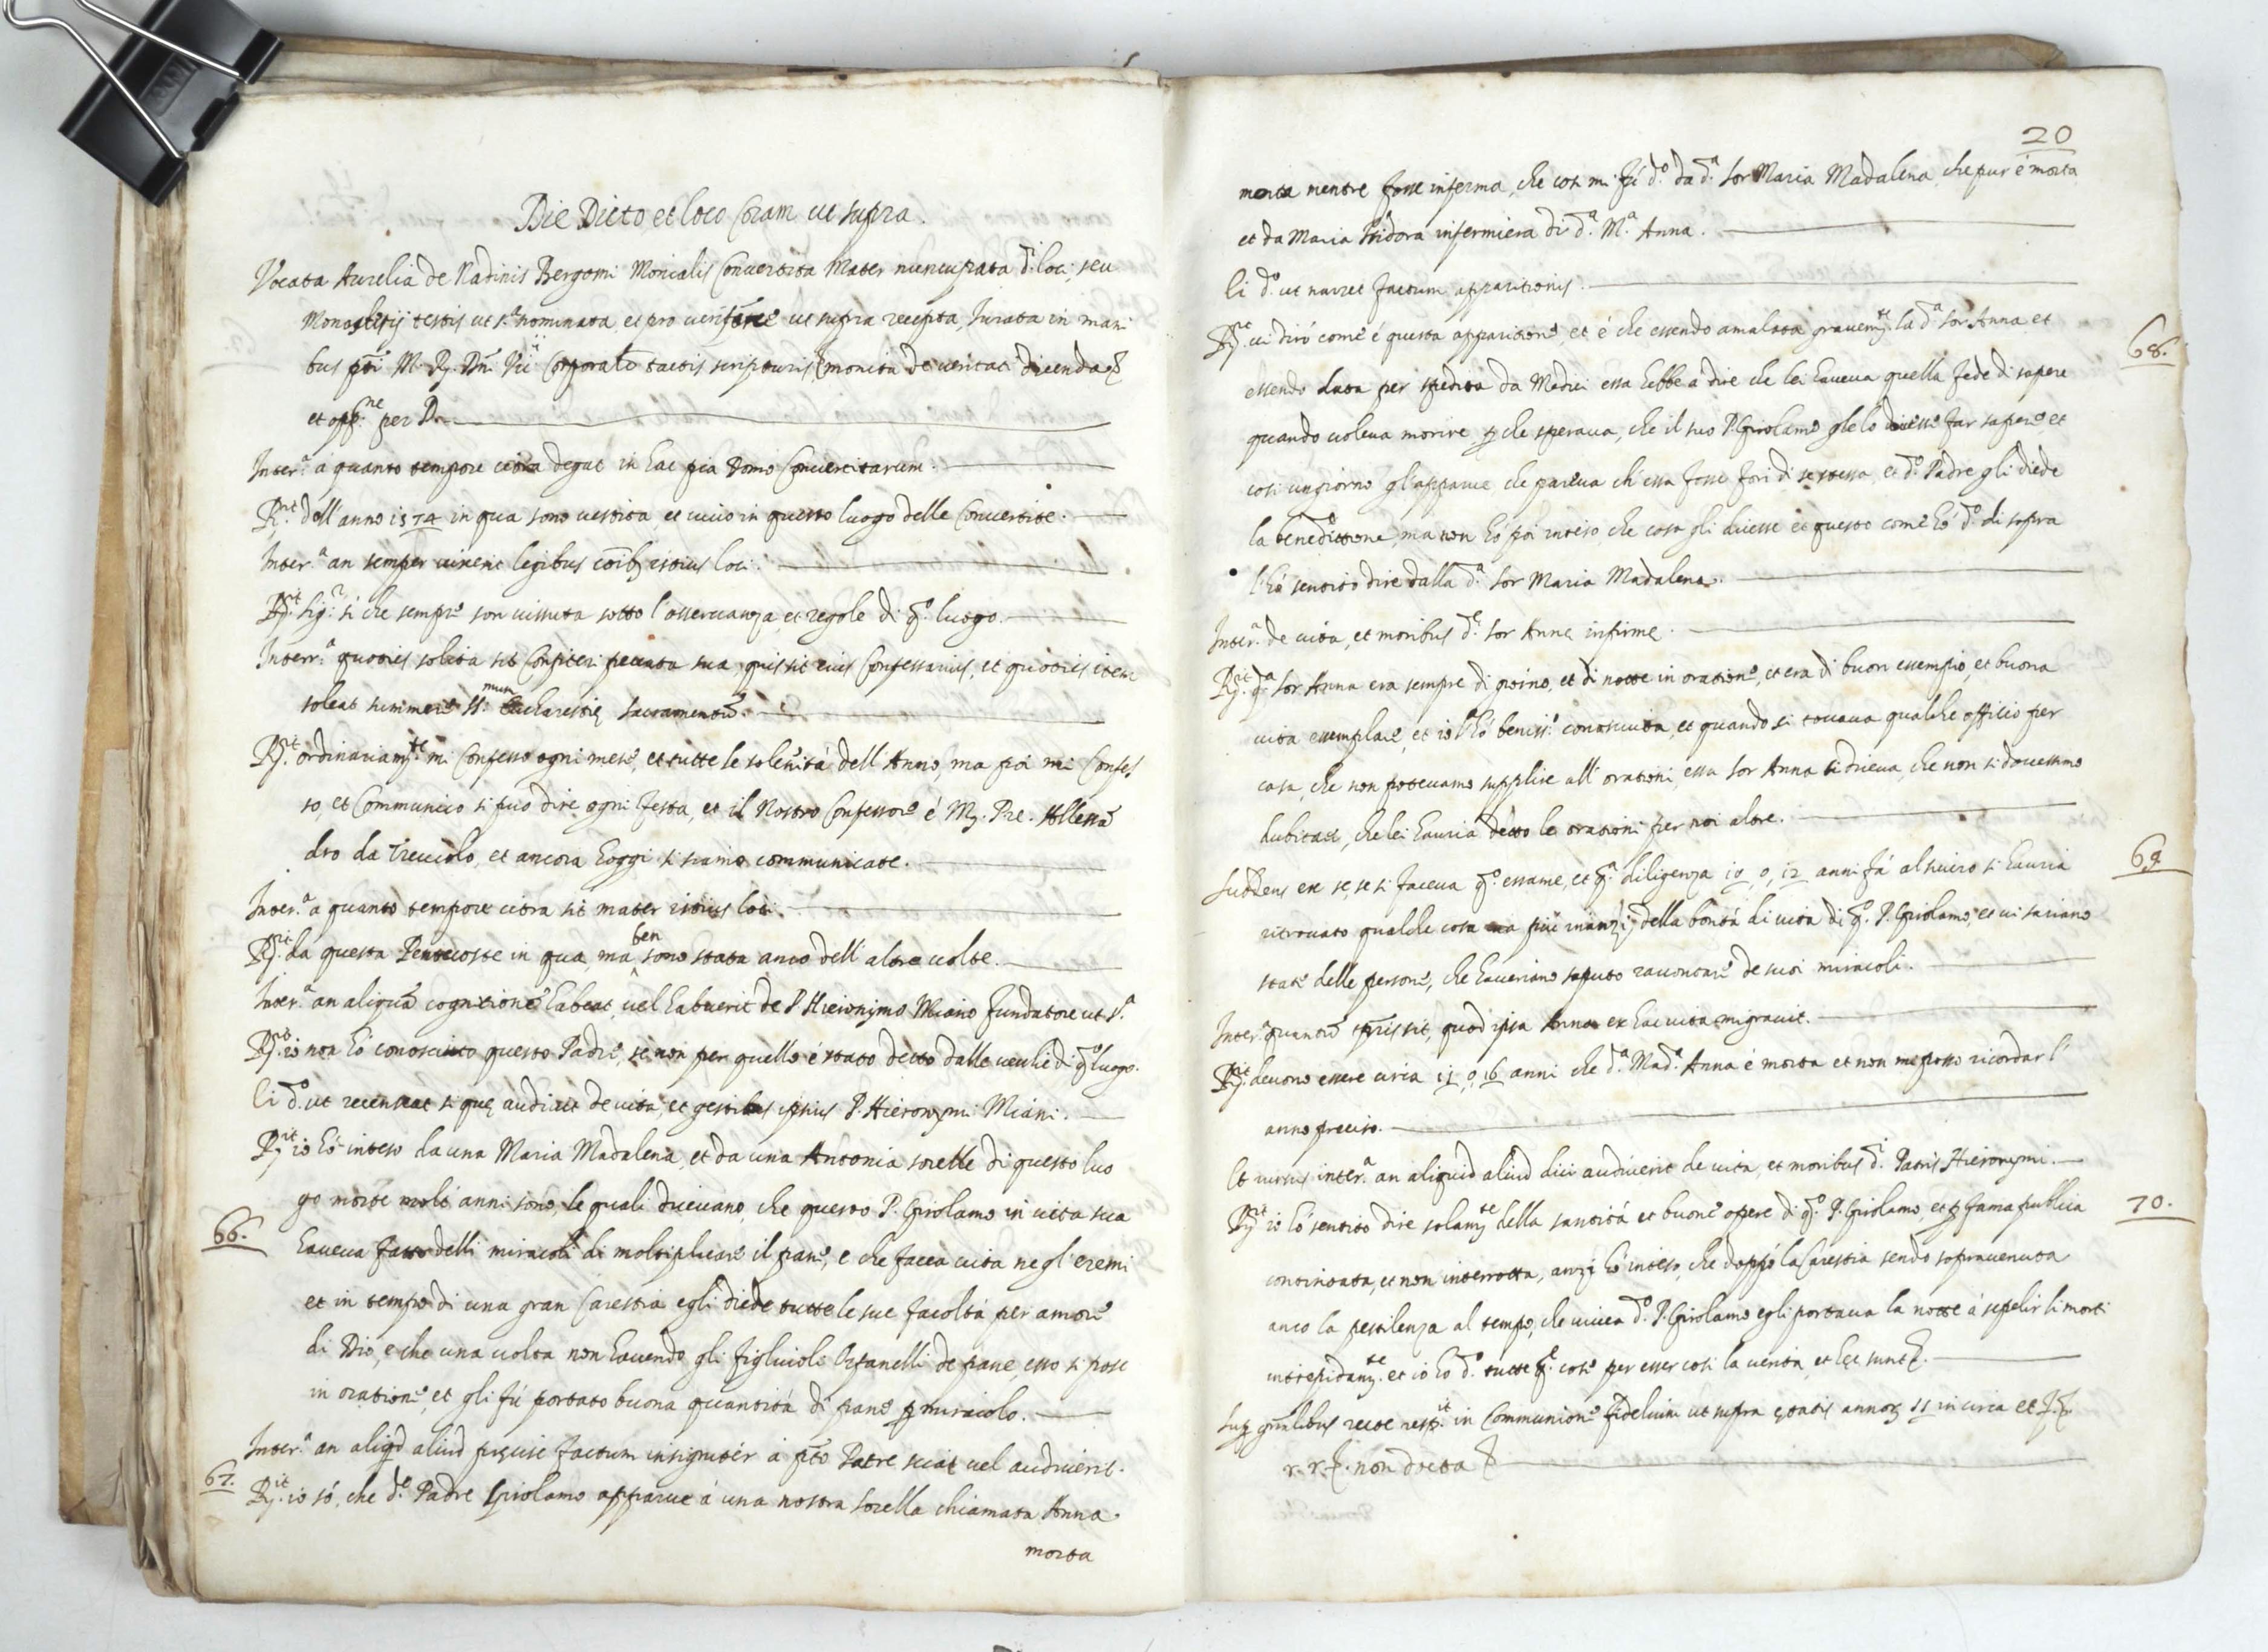 Die Dicto et loco Coram ut supra.
Vocata Aurelia de Nadinis Bergomi Monialis Convertita Mater nuncupata d.i loci, seu
Monasterij testis ut s.a nominata, et pro ut supra recepta, Iurata in mani
bus p̃ti M. R. Dñi Vic. Corporalr tactis scripturis monita de veritate dicenda &
et opp.ne per D.
Inter.a à quanto tempore citra degat in hac pia Domo Convertitarum.
R.nt dell'anno 1574 in qua sono vestita et vivo in questo luogo delle Convertite.
Inter.a an semper vixerit legibus cõibus istius loci.
R.it sig.r si che sempre son vissuta sotto l'osservanza et regole di q.o luogo.
Interr.a quoties solita sit Confiteri peccata sua, quis sit eius Confessarius, et quoties item
soleat summere SS.mum Eucharestię Sacramentũ.
R.it ordinariam.te mi Confesso ogni mese, et tutte le solenità dell'Anno, ma poi mi Confes
so, et Communico si può dire ogni festa, et il Nostro Confessore è M. Pre. Allessã
dro da Trecciolo, et ancora hoggi si siamo communicate.
Inter.a a quanto tempore citra sit mater istius loci.
R.it da questa Pentecoste in qua, ma ben sono stata anco dell'altre volte.
Inter.a an aliquã cognitionẽ habeat, vel habuerit de P. Hieronymo Miano fundatore ut s.a
R.it io non hò conosciuto questo Padre, se non per quello è stato detto dalle vecchie di q.o luogo.
Ei d.o ut recenseat si quę audivit de vita, et gestibus ipsius P. Hieronymi Miani.
R.it io hò inteso da una Maria Madalena, et da una Antonia sorelle di questo luo
go morte molti anni sono, le quali dicevano, che questo P. Girolamo in vita sua
66.
haveva fatto delli miracoli di moltiplicare il pane, e che facea vita negl'eremi
et in tempo di una gran Carestia egli diede tutte le sue facoltà per amore
di Dio, e che una volta non havendo gli figliuoli Orfanelli de pane, esso si pose
in oratione, et gli fù portato buona quantità di pane p miracolo.
Inter.a an aliqd aliud fuisse factum insigniter à p̃to Patre sciat vel audiverit.
67.
R.it io sò, che d.o Padre Girolamo apparve à una nostra sorella chiamata Anna
morta
20
morta mentre fosse inferma, che così mi fù d.o da d.a sor Maria Madalena, che pur è morta
et da Maria Isidora infermiera di d.a M.a Anna.
Ei d.o ut narret factum apparitionis.
68.
R.nt vi dirò come è questa apparitione, et è che essendo amalata gravem.te la d.a sor Anna et
essendo data per spedita da Medici essa hebbe à dire che lei haveva quella fede di sapere
quando voleva morire, p che sperava, che il suo P. Girolamo glelo dovesse far sapere et
così un giorno gl'apparve che pareva ch'essa fosse fori di se stessa, et d.o Padre gli diede
la benedittione, ma non hò poi inteso che cosa gli dicesse et questo come hò d.o di sopra
l'hò sentito dire dalla d.a sor Maria Madalena.
Inter.a de vita, et moribus d.ę sor Annę infirmę.
R.it q.a sor Anna era sempre di giorno, et di notte in oratione, et era di buon essempio, et buona
vita essemplare, et io l'hò beniss.o conosciuta, et quando si trovava qualche officio per
casa, che non potevamo supplire all'orationi, essa sor Anna ci diceva, che non si dovessimo
dubitar, che lei havria detto le orationi per noi altre.
69.
Subdens ex se, se si faceva q.o essame, et q.a diligenza 10, o, 12 anni fà al sicuro si havria
ritrovato qualche cosa più inanzi della bontà di vita di q.o P. Girolamo, et vi sariano
state delle persone, che haveriano saputo raccontare de suoi miracoli.
Inter.a quantũ tp̃ris sit, quod ipsa Anna ex hac vita migravit.
R.it devono essere circa 15 o 16 anni che d.a Mad.a Anna è morta et non me posso ricordar l'
anno preciso.
Et rursus inter.a an aliquid aliud dici audiverit de vita, et moribus d.i Patris Hieronymi.
70.
R.it io hò sentito dire solam.te della santità et buone opere di q.o P. Girolamo, et p fama publica
continuata, et non interrotta, anzi hò inteso, che doppò la Carestia sendo sopravenuta
anco la pestilenza al tempo, che vivea d.o P. Girolamo egli portava la notte à sepelir li morti
intrepidam.te et io hò d.o tutte q.e cose per esser così la verità, et hęc sunt &.
Sup gñalibus recte resp.it in Communione fidelium ut supra ętatis annor 55 in circa et
r. r. non docta &